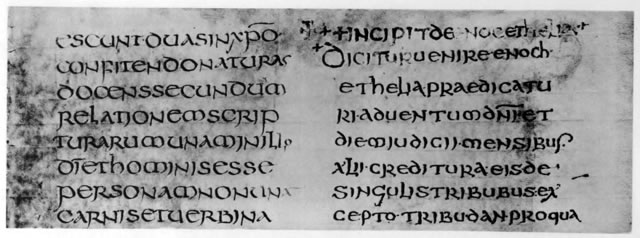 escuntduasinxp̄o·
confitendonaturas
docenssecundum
relationemscrip
turarumunaminill
dīethominisesse
personamnonuna
carnisetuerbina
++incipitde·nocethelia+
+dicituruenire·enoch·
etheliapraedicatu
ri·aduentumdn̄iet
diemiudicii·mensibus·
xlii·credituraeisde·
singulistribubus·ex
cepto·tribudan·proqua